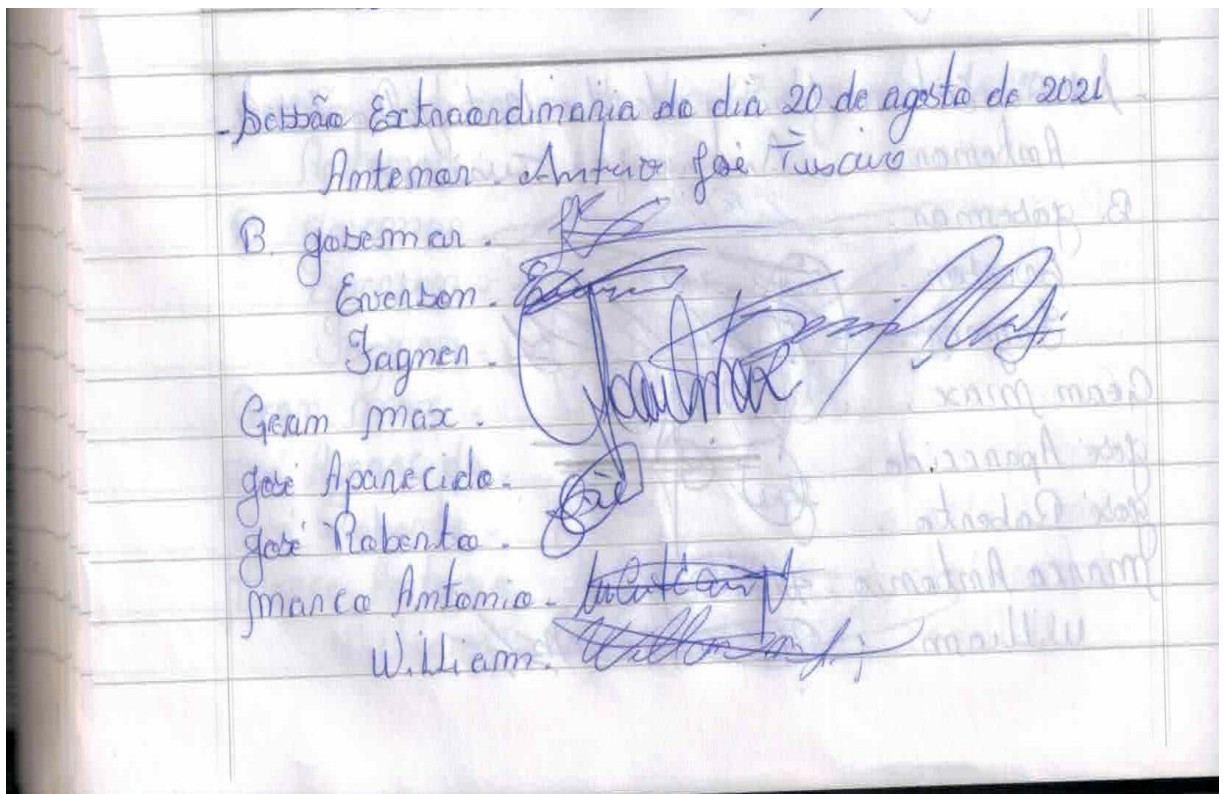 - Sessão Extraordinaria do dia 20 de agosto de 2021
Antemar. Antenor José
B. Josemar.
Everson.
Fagner.
Gean Max. Jean Max
José Aparecido.
José Roberto. José
Marco Antonio.
William.